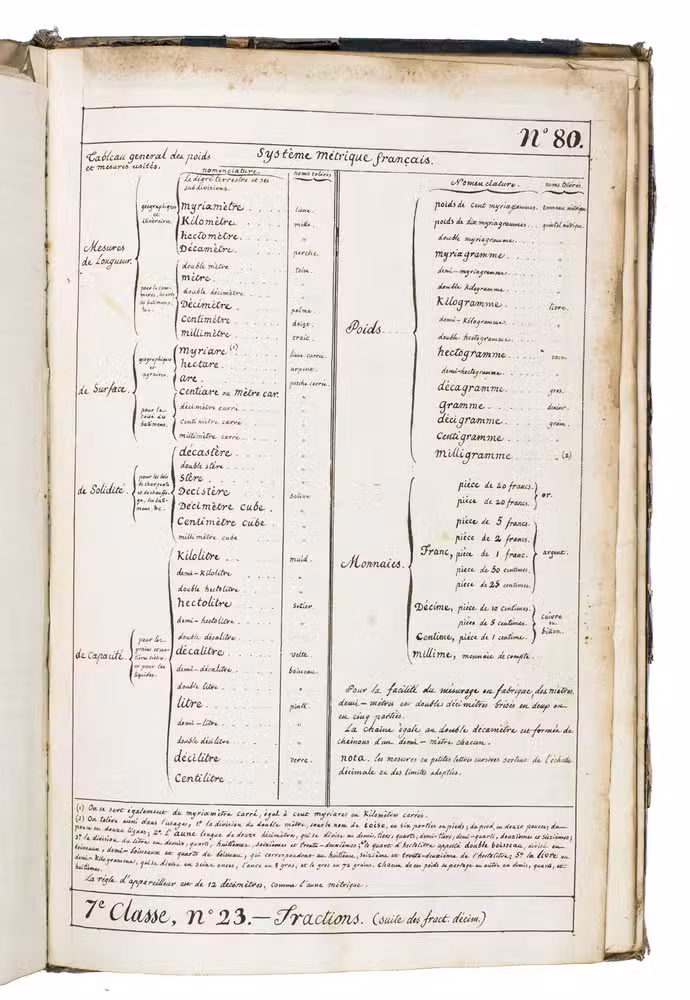 N° 80.
Tableau général des poids
et mesures usités.
Système métrique français.
nomenclature.
noms tolérés
Le degré terrestre et ses
subdivisions.
Mesures
de Longueur.
géographiques
et
itinéraires.
myriamètre
lieue.
Kilomètre
mille.
hectomètre
"
Décamètre
perche.
double mètre
toise.
mètre
"
double décimètre
"
Décimètre
palme.
Centimètre
doigt.
millimètre
trait.
de Surface.
géographiques
et
agraires.
myriare (1)
lieue carrée.
hectare
arpent.
are
perche carrée.
Centiare ou mètre car.
"
pour le
toisé des
batimens.
décimètre carré
"
Centimètre carré
"
millimètre carré
"
de Solidité.
pour les bois
de charpente
et de chauffa-
ge, les bati-
mens, &c.
décastère
"
double stère
"
Stère
"
Décistère
solive
Décimètre cube
"
Centimètre cube
"
millimètre cube
"
de Capacité.
pour les
liquides.
Kilolitre
muid.
demi-kilolitre
"
double hectolitre
"
hectolitre
setier.
demi-hectolitre
"
double décalitre
"
décalitre
velte.
demi-décalitre
boisseau.
double litre
"
litre
pinte.
demi-litre
"
double décilitre
"
décilitre
verre.
Centilitre
Nomenclature.
noms tolérés
Poids
poids de cent myriagrammes.
tonneau métrique
poids de dix myriagrammes.
quintal métrique.
double myriagramme
"
myriagramme
"
demi-myriagramme
"
double kilogramme
"
Kilogramme
livre.
demi-Kilogramme
"
double hectogramme
"
hectogramme
once.
demi-hectogramme
"
décagramme
gros.
gramme
denier.
décigramme
grain.
Centigramme
"
milligramme
" (2)
Monnaies.
pièce de 40 francs.
pièce de 20 francs.
or.
Franc,
pièce de 5 francs.
pièce de 2 francs.
pièce de 1 franc.
pièce de 50 centimes.
pièce de 25 centimes.
argent.
Décime, pièce de 10 centimes.
pièce de 5 centimes.
Centime, pièce de 1 centime.
cuivre
ou
billon.
millime, monnaie de compte.
Pour la facilité du mesurage on fabrique des mètres,
demi-mètres et doubles décimètres brisés en deux ou
en cinq parties.
La chaîne égale au double décamètre est formée de
chainons d'un demi-mètre chacun.
nota. les mesures en petites lettres cursives sortent de l'échelle
décimale ou des limites adoptées.
(1) On se sert également du myriamètre carré, égal à cent myriares ou Kilomètres carrés.
(2) On tolère aussi dans l'usage, 1° la division du double mètre, sous le nom de toise, en six parties ou pieds; du pied, en douze pouces; du
pouce en douze lignes; 2° L'aune longue de douze décimètres, qui se divise en demis, tiers, quarts, demi-tiers, demi-quarts, douzièmes et seizièmes;
3° la division du litre en demis, quarts, huitièmes, seizièmes et trente-deuxièmes; 4° le quart d'hectolitre appelé double boisseau, divisé en
boisseaux, demi-boisseaux et quarts de boisseau, qui correspondent au huitième, seizième et trente-deuxième de l'hectolitre; 5° la livre ou
demi-kilogramme, qui se divise en seize onces, l'once en 8 gros, et le gros en 72 grains. Chacun de ces poids se partage en outre en demis, quarts, et
huitièmes.
La règle d'appareilleur est de 12 décimètres, comme l'aune métrique.
7e Classe, n° 23. — Fractions. (suite des fract. décim.)